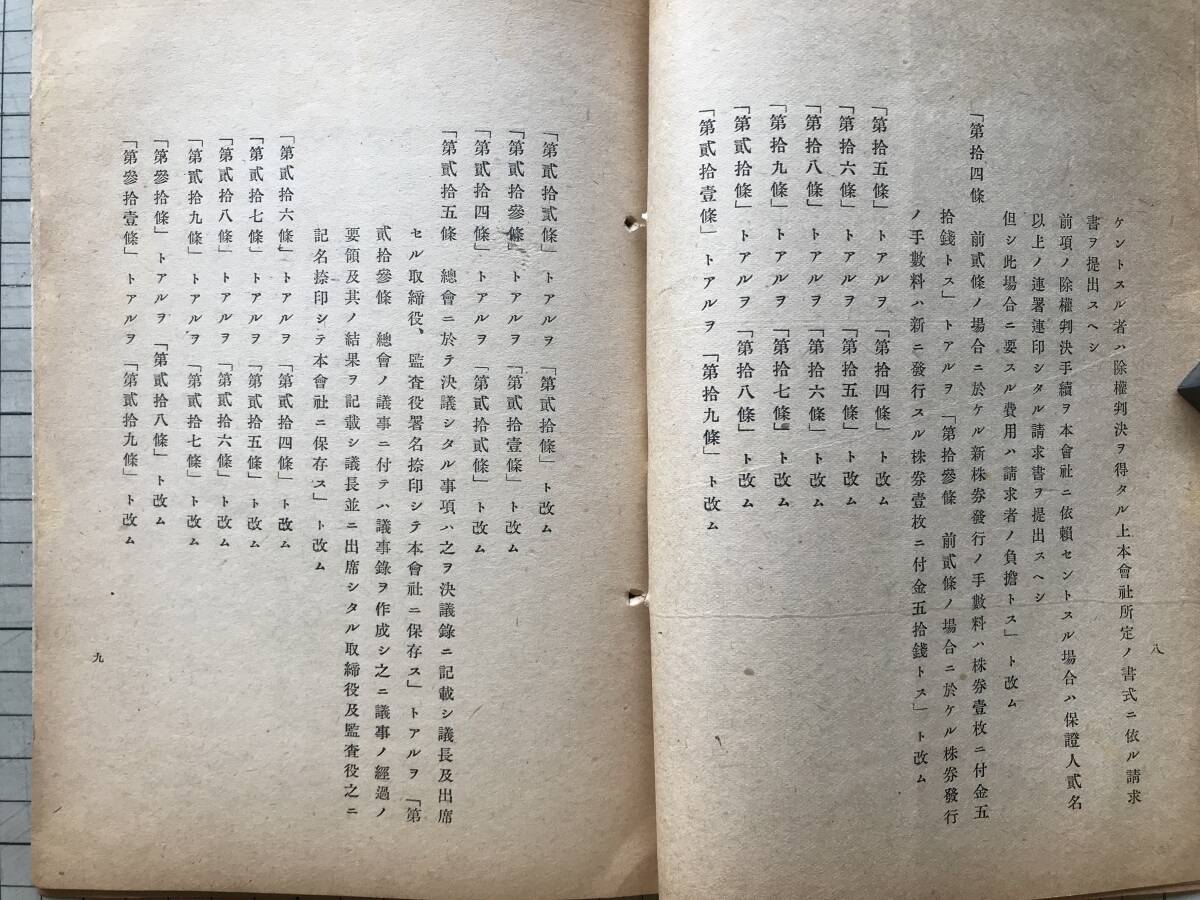 八
ケントスル者ハ除權判決ヲ得タル上本會社所定ノ書式ニ依ル請求
書ヲ提出スヘシ
前項ノ除權判決手續ヲ本會社ニ依賴セントスル場合ハ保證人貳名
以上ノ連署連印シタル請求書ヲ提出スヘシ
但シ此場合ニ要スル費用ハ請求者ノ負擔トス」ト改ム
「第拾四條　前貳條ノ場合ニ於ケル新株券發行ノ手數料ハ株券壹枚ニ付金五
拾錢トス」トアルヲ「第拾參條　前貳條ノ場合ニ於ケル株券發行
ノ手數料ハ新ニ發行スル株券壹枚ニ付金五拾錢トス」ト改ム
「第拾五條」トアルヲ「第拾四條」ト改ム
「第拾六條」トアルヲ「第拾五條」ト改ム
「第拾八條」トアルヲ「第拾六條」ト改ム
「第拾九條」トアルヲ「第拾七條」ト改ム
「第貳拾條」トアルヲ「第拾八條」ト改ム
「第貳拾壹條」トアルヲ「第拾九條」ト改ム
「第貳拾貳條」トアルヲ「第貳拾條」ト改ム
「第貳拾參條」トアルヲ「第貳拾壹條」ト改ム
「第貳拾四條」トアルヲ「第貳拾貳條」ト改ム
「第貳拾五條　總會ニ於テ決議シタル事項ハ之ヲ決議錄ニ記載シ議長及出席
セル取締役、監査役署名捺印シテ本會社ニ保存ス」トアルヲ「第
貳拾參條　總會ノ議事ニ付テハ議事錄ヲ作成シ之ニ議事ノ經過ノ
要領及其ノ結果ヲ記載シ議長並ニ出席シタル取締役及監査役之ニ
記名捺印シテ本會社ニ保存ス」ト改ム
「第貳拾六條」トアルヲ「第貳拾四條」ト改ム
「第貳拾七條」トアルヲ「第貳拾五條」ト改ム
「第貳拾八條」トアルヲ「第貳拾六條」ト改ム
「第貳拾九條」トアルヲ「第貳拾七條」ト改ム
「第參拾條」トアルヲ「第貳拾八條」ト改ム
「第參拾壹條」トアルヲ「第貳拾九條」ト改ム
九